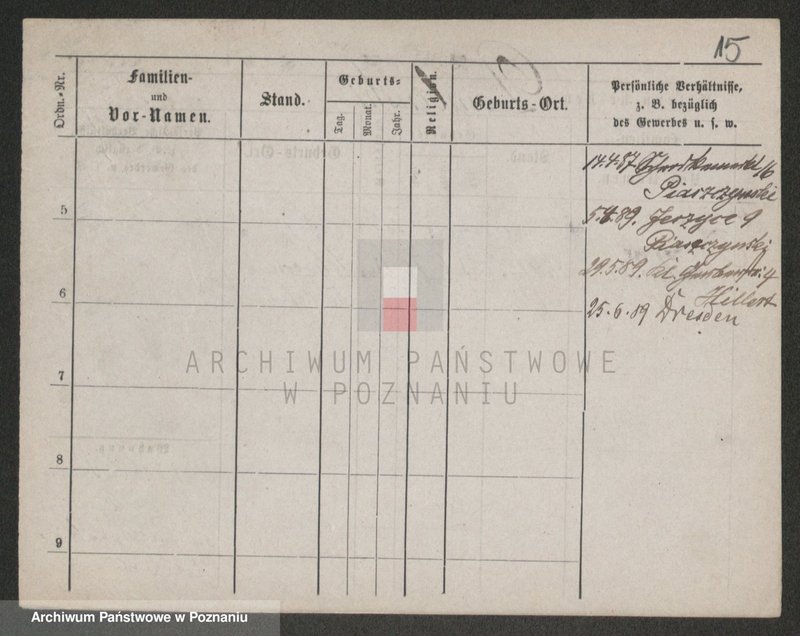 15
Ordn.-Nr.
Familien-
und
Vor-Namen.
Stand.
Geburts-
Tag.
Monat.
Jahr.
Religion.
Geburts-Ort.
Persönliche Verhältnisse,
z. B. bezüglich
des Gewerbes u. s. w.
14.4.87 16
Piaszczynski
5.4.89. Jerzyce 9
Piaszczynski
29.5.89. 4
Hillert
25.6.89 Dresden
5
6
7
8
9
ARCHIWUM PAŃSTWOWE
W POZNANIU
Archiwum Państwowe w Poznaniu